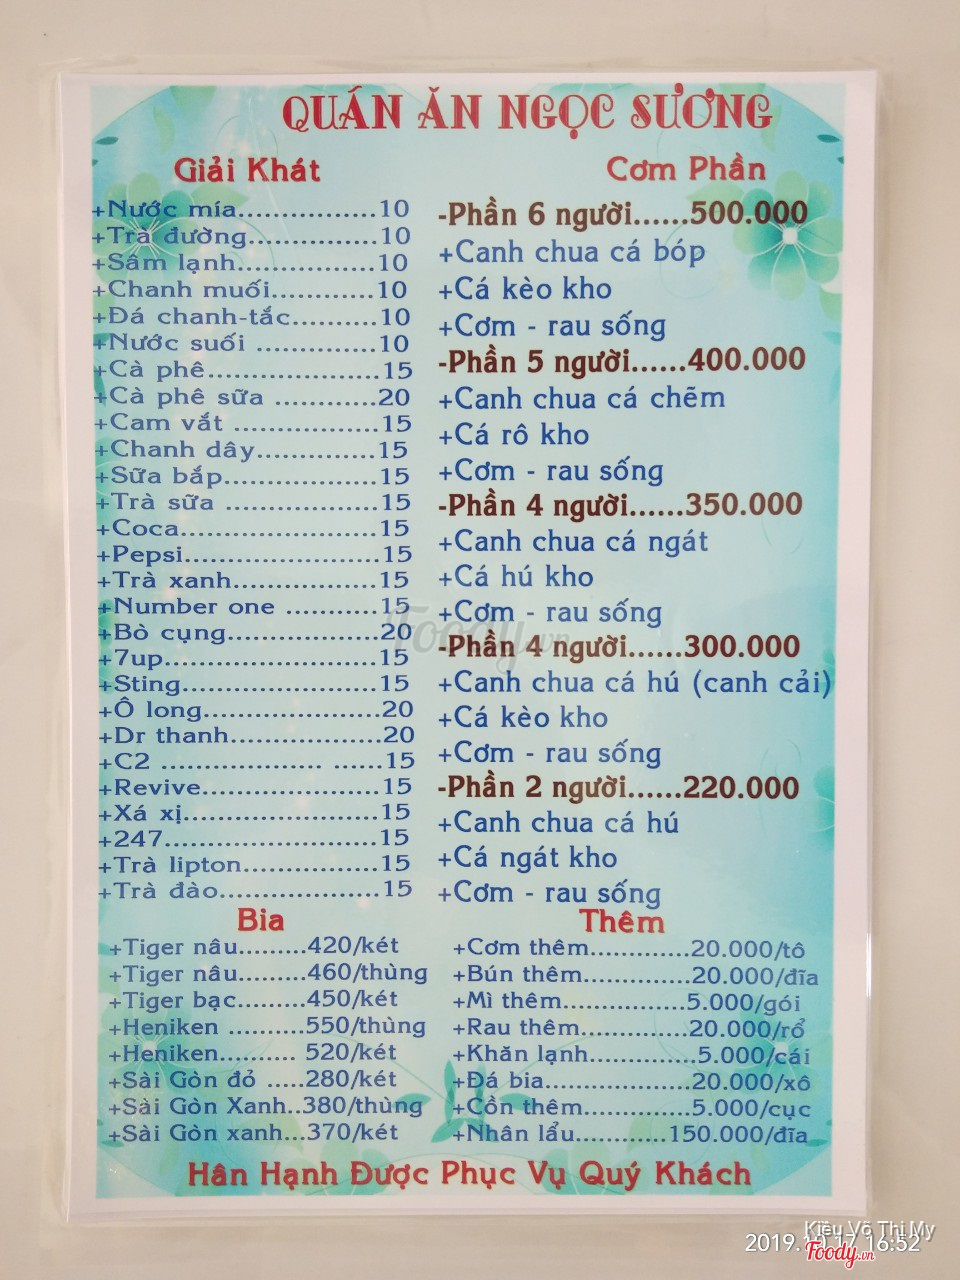 QUÁN ĂN NGỌC SƯƠNG
Giải Khát
+Nước mía.................10
+Trà đường................10
+Sâm lạnh.................10
+Chanh muối.............10
+Đá chanh-tắc..........10
+Nước suối ...............10
+Cà phê.....................15
+Cà phê sữa ............20
+Cam vắt ..................15
+Chanh dây...............15
+Sữa bắp...................15
+Trà sữa ...................15
+Coca........................15
+Pepsi........................15
+Trà xanh..................15
+Number one ...........15
+Bò cụng...................20
+7up..........................15
+Sting........................15
+Ô long......................20
+Dr thanh...................20
+C2 ................... ......15
+Revive......................15
+Xá xị........................15
+247..........................15
+Trà lipton.................15
+Trà đào....................15
Cơm Phần
-Phần 6 người......500.000
+Canh chua cá bóp
+Cá kèo kho
+Cơm - rau sống
-Phần 5 người......400.000
+Canh chua cá chẽm
+Cá rô kho
+Cơm - rau sống
-Phần 4 người......350.000
+Canh chua cá ngát
+Cá hú kho
+Cơm - rau sống
-Phần 4 người......300.000
+Canh chua cá hú (canh cải)
+Cá kèo kho
+Cơm - rau sống
-Phần 2 người......220.000
+Canh chua cá hú
+Cá ngát kho
+Cơm - rau sống
Bia
+Tiger nâu.........420/két
+Tiger nâu.........460/thùng
+Tiger bạc..........450/két
+Heniken ..........550/thùng
+Heniken.......... 520/két
+Sài Gòn đỏ .....280/két
+Sài Gòn Xanh..380/thùng
+Sài Gòn xanh...370/két
Thêm
+Cơm thêm.............20.000/tô
+Bún thêm..............20.000/đĩa
+Mì thêm................5.000/gói
+Rau thêm..............20.000/rổ
+Khăn lạnh..............5.000/cái
+Đá bia...................20.000/xô
+Cồn thêm..............5.000/cục
+Nhân lẩu............150.000/đĩa
Hân Hạnh Được Phục Vụ Quý Khách
Foody.vn
Kiều Võ Thị My
2019.10.17 16:52
Foody.vn